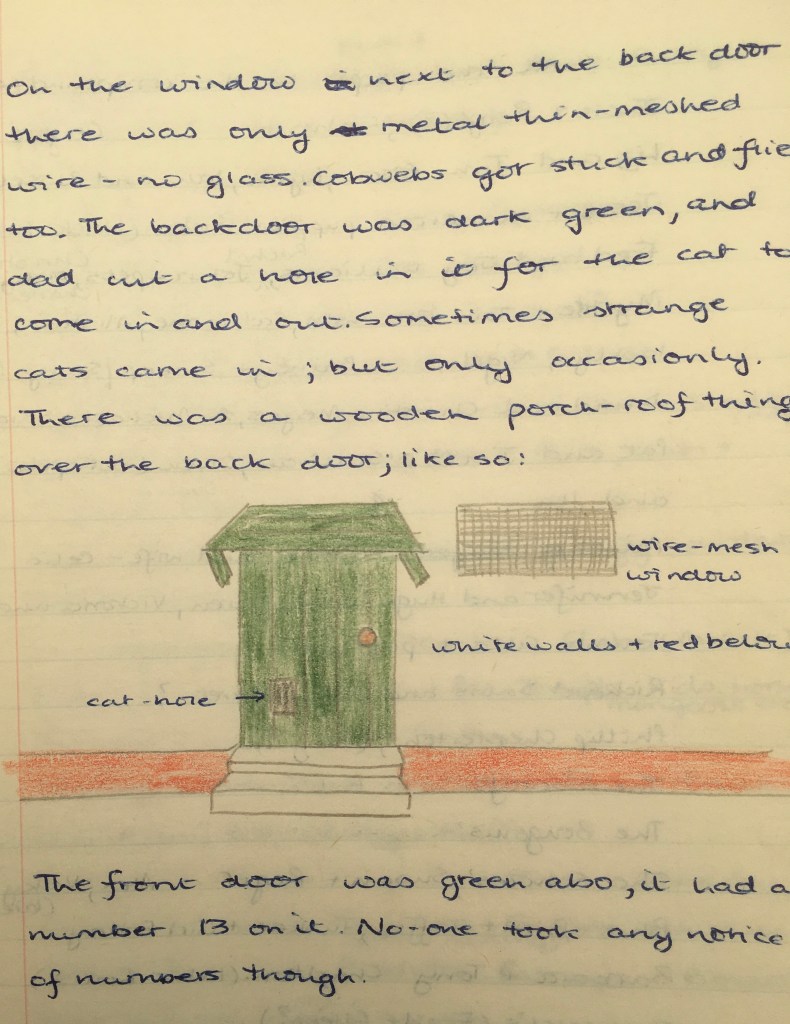 On the window next to the back door
there was only metal thin-meshed
wire - no glass. Cobwebs got stuck and flie
too. The backdoor was dark green, and
dad cut a hole in it for the cat to
come in and out. Sometimes strange
cats came in; but only occasionly.
There was a wooden porch-roof thing
over the back door; like so:
wire-mesh
window
white walls + red below
cat-hole →
The front door was green also, it had a
number 13 on it. No-one took any notice
of numbers though.